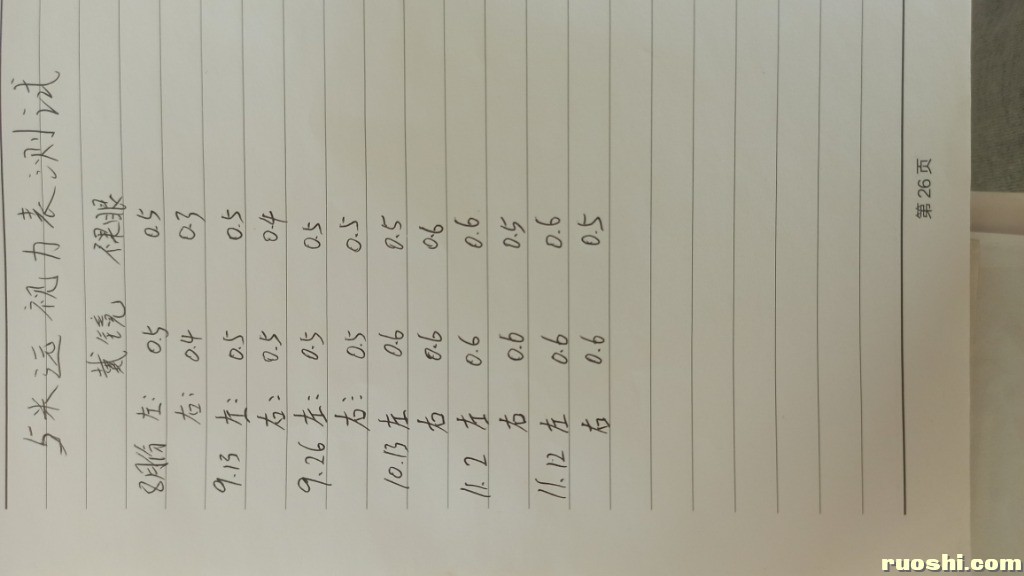 5米远视力表测试
戴镜 裸眼
8月份 左: 0.5 0.5
右: 0.4 0.3
9.13 左: 0.5 0.5
右: 0.5 0.4
9.26 左: 0.5 0.5
右: 0.5 0.5
10.13 左 0.6 0.5
右 0.6 0.6
11.2 左 0.6 0.6
右 0.6 0.5
11.12 左 0.6 0.6
右 0.6 0.5
第26页
ruoshi.com